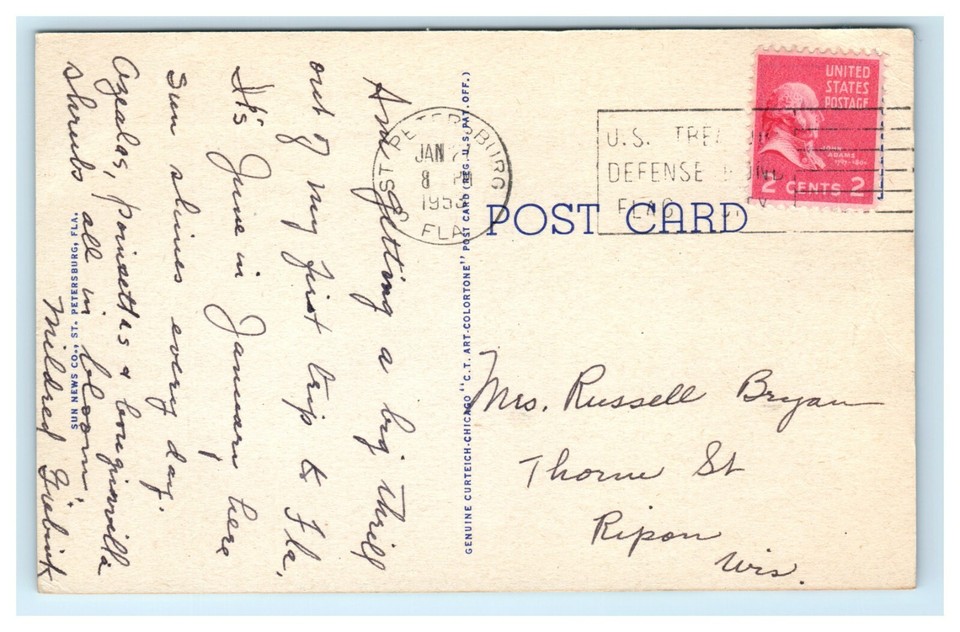 Am getting a big thrill
out of my first trip to Fla.
It's June in January here
Sun shines every day.
Azealas, poinsettas & bouginvilla
shrubs all in bloom
Mildred
SUN NEWS CO., ST. PETERSBURG, FLA.
GENUINE CURTEICH-CHICAGO "C.T. ART-COLORTONE" POST CARD (REG. U.S. PAT. OFF.)
ST PETERSBURG
JAN
8
1953
FLA
U.S. TREASURY
DEFENSE BOND
FLAG
UNITED
STATES
POSTAGE
JOHN
ADAMS
2 CENTS 2
POST CARD
Mrs. Russell Bryan
Thorne St
Ripon
Wis.